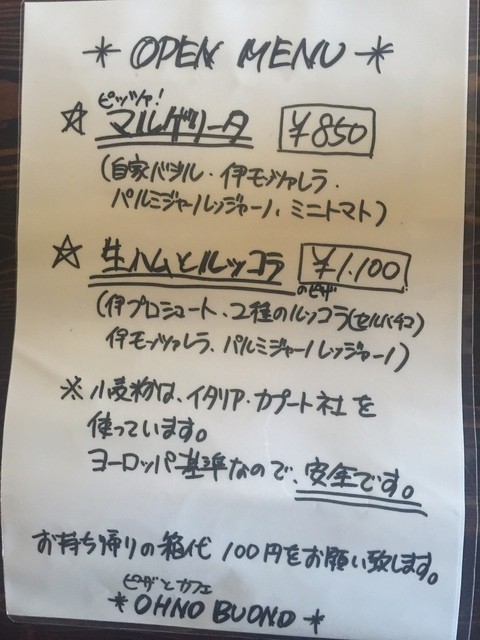 * OPEN MENU *
ピッツァ!
☆ マルゲリータ ¥850
(自家バジル・伊モッツァレラ・
パルミジャーノレッジャーノ、ミニトマト)
☆ 生ハムとルッコラ のピザ ¥1.100
(伊プロシュート、2種のルッコラ(セルバチコ)
伊モッツァレラ、パルミジャーノレッジャーノ)
※ 小麦粉は、イタリア・カプート社を
使っています。
ヨーロッパ基準なので、安全です。
お持ち帰りの箱代 100円をお願い致します。
ピザとカフェ
* OHNO BUONO *